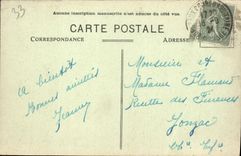 33
Aucune inscription manuscrite n'est admise de ce côté
CARTE POSTALE
CORRESPONDANCE
ADRESSE
A bientôt
Bonnes amitiés
Jeanne
Monsieur et
Madame Flamant
Recettes des Finances
Jonzac
Ch<sup>te</sup> Inf<sup>re</sup>